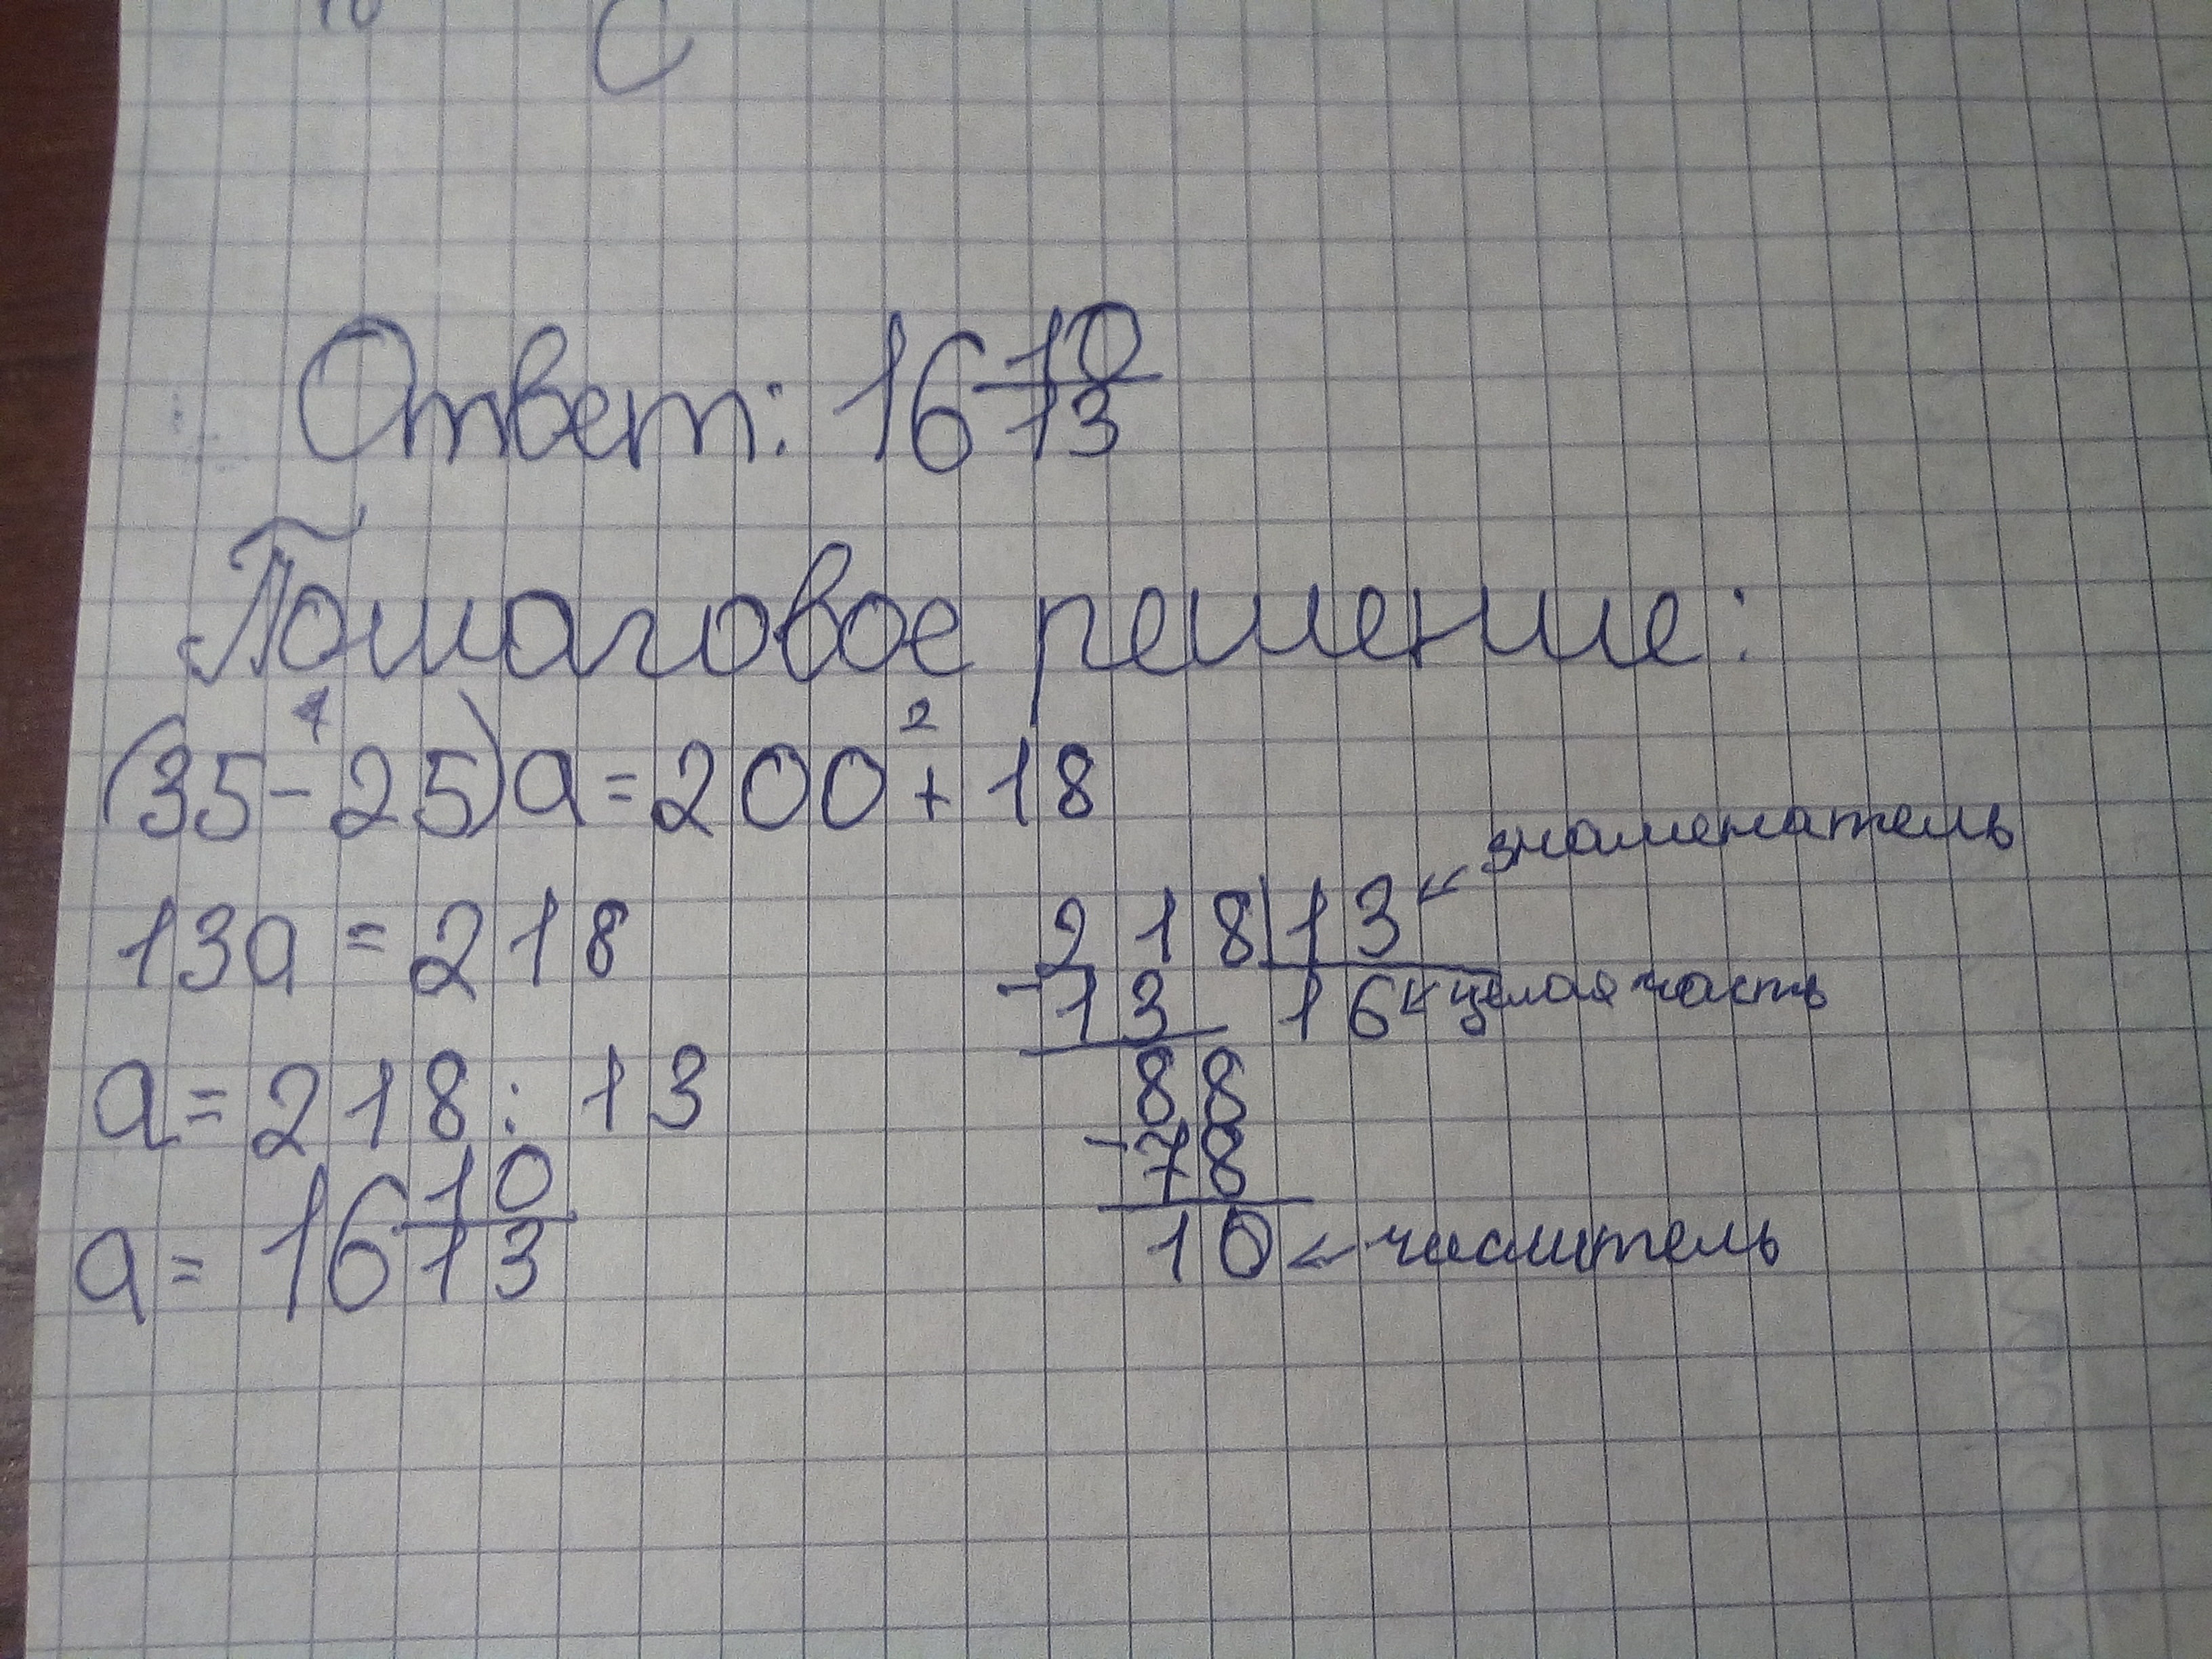 Ответ: 16 10/13
Пошаговое решение:
1 2
(35-25)a=200+18
знаменатель
13a=218
218|13
-13 16 целая часть
a=218:13
88
-78
a=16 10/13
10 ← числитель